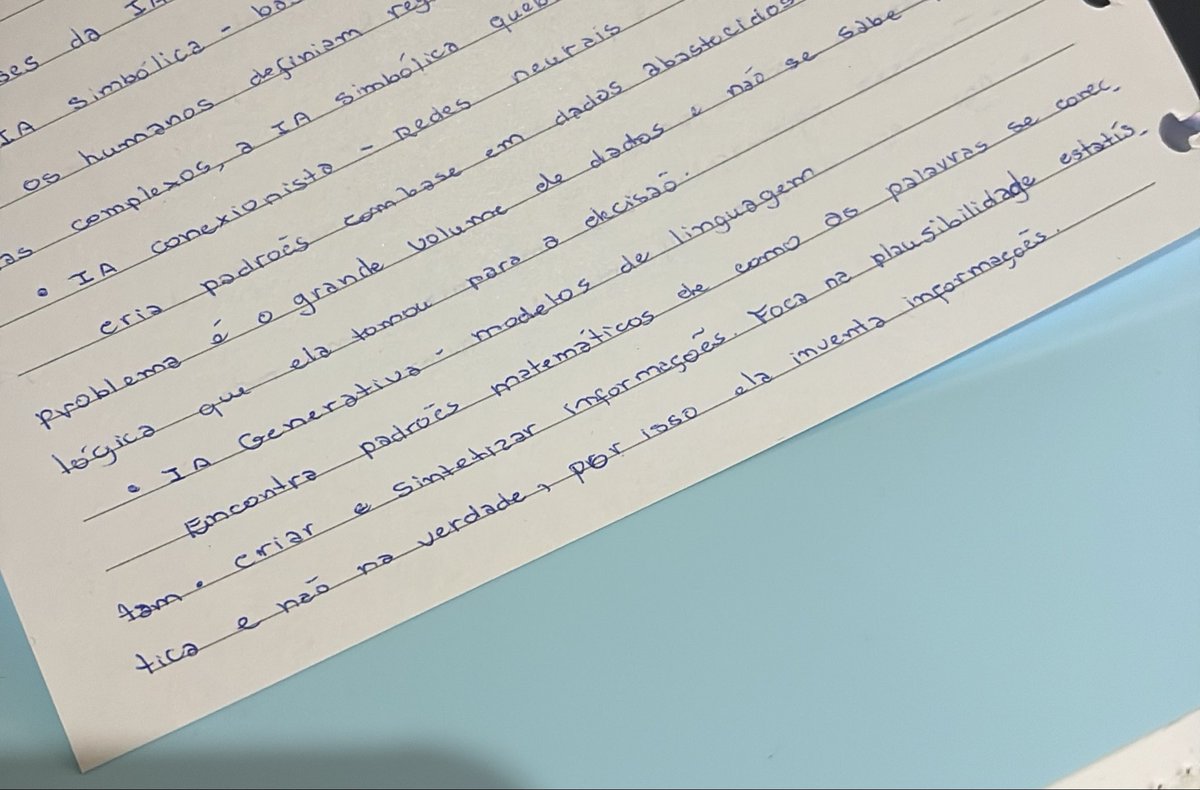 ses da IA
IA simbólica - ba
os humanos definiam reg
as complexos, a IA simbólica queb
• IA conexionista - Redes neurais
cria padroẽs combase em dados abastecidos
Problema é o grande volume de dados e não se sabe
lógica que ela tomou para a decisaõ.
• IA Generativa - modelos de linguagem
Encontra padroẽs matemáticos de como as palavras se conec-
tam. criar e sintetizar informaçoẽs. Foca na plausibilidade estatís-
tica e não na verdade, por isso ela inventa informaçoẽs.